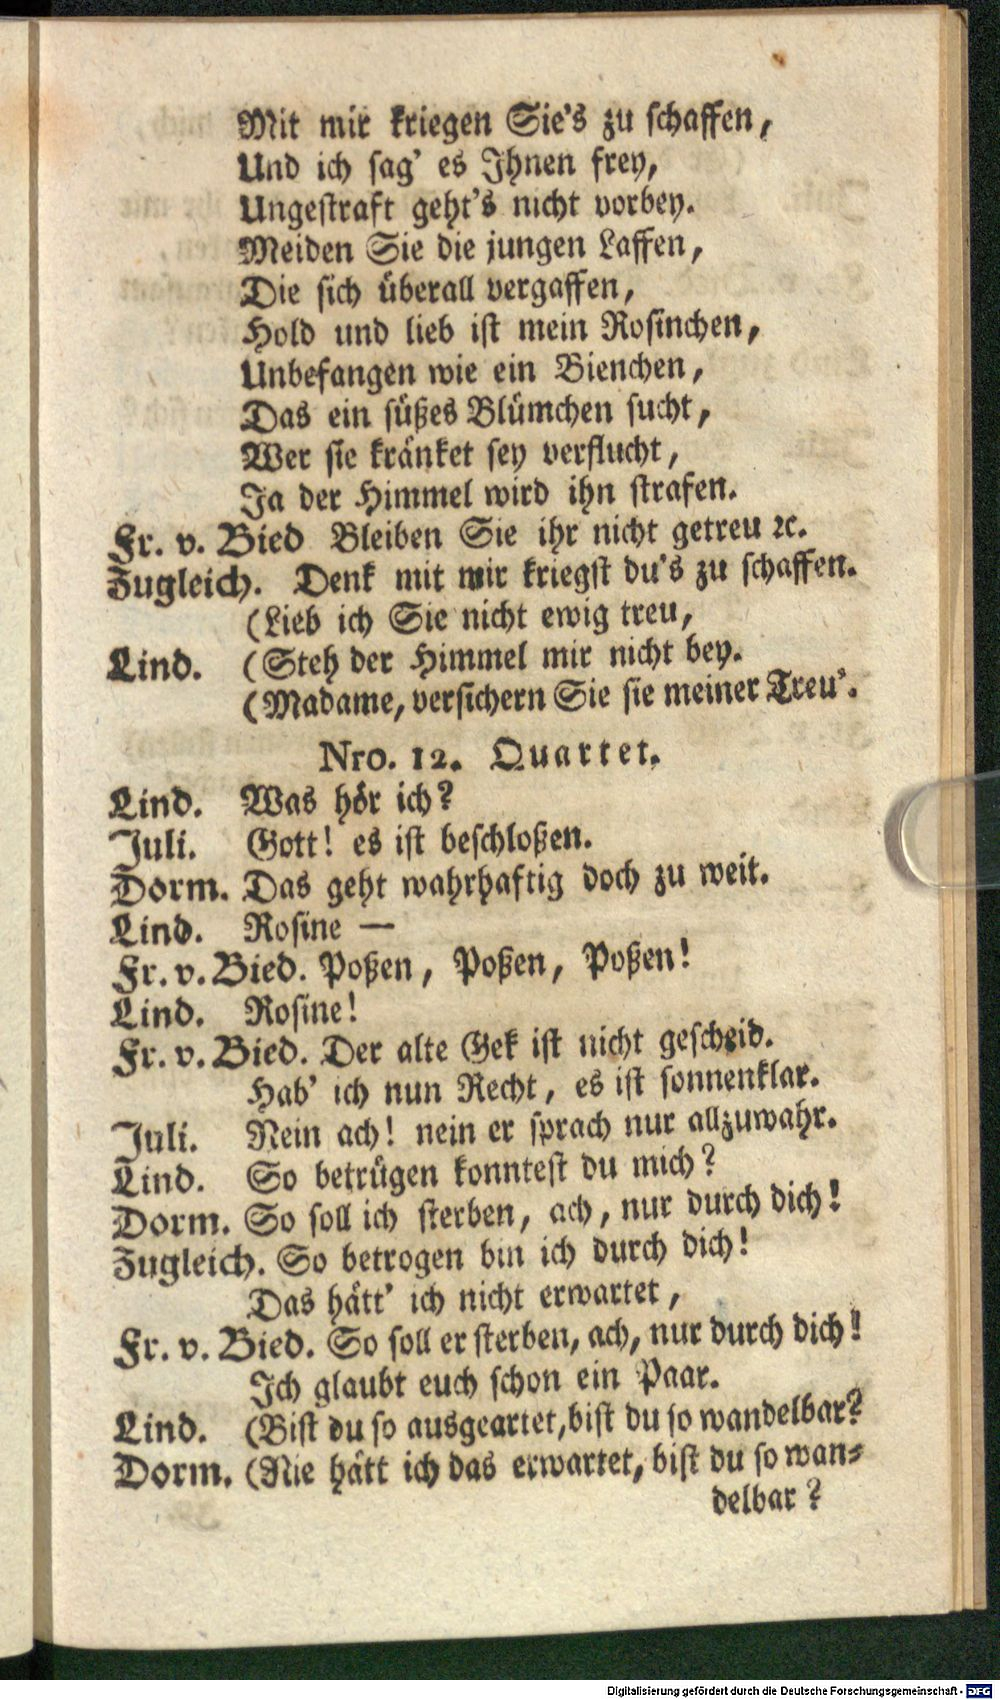 Mit mir kriegen Sie's zu schaffen,
Und ich sag' es Ihnen frey,
Ungestraft geht's nicht vorbey.
Meiden Sie die jungen Laffen,
Die sich überall vergaffen,
Hold und lieb ist mein Rosinchen,
Unbefangen wie ein Bienchen,
Das ein süßes Blümchen sucht,
Wer sie kränket sey verflucht,
Ja der Himmel wird ihn strafen.
Fr. v. Bied Bleiben Sie ihr nicht getreu ꝛc.
Zugleich. Denk mit mir kriegst du's zu schaffen.
(Lieb ich Sie nicht ewig treu,
Lind. (Steh der Himmel mir nicht bey.
(Madame, versichern Sie sie meiner Treu'.
Nro. 12. Quartet.
Lind. Was hör ich?
Juli. Gott! es ist beschloßen.
Dorm. Das geht wahrhaftig doch zu weit.
Lind. Rosine —
Fr. v. Bied. Poßen, Poßen, Poßen!
Lind. Rosine!
Fr. v. Bied. Der alte Gek ist nicht gescheid.
Hab' ich nun Recht, es ist sonnenklar.
Juli. Nein ach! nein er sprach nur allzuwahr.
Lind. So betrügen konntest du mich?
Dorm. So soll ich sterben, ach, nur durch dich!
Zugleich. So betrogen bin ich durch dich!
Das hätt' ich nicht erwartet,
Fr. v. Bied. So soll er sterben, ach, nur durch dich!
Ich glaubt euch schon ein Paar.
Lind. (Bist du so ausgeartet, bist du so wandelbar?
Dorm. (Nie hätt ich das erwartet, bist du so wan-
delbar?
Digitalisierung gefördert durch die Deutsche Forschungsgemeinschaft - DFG